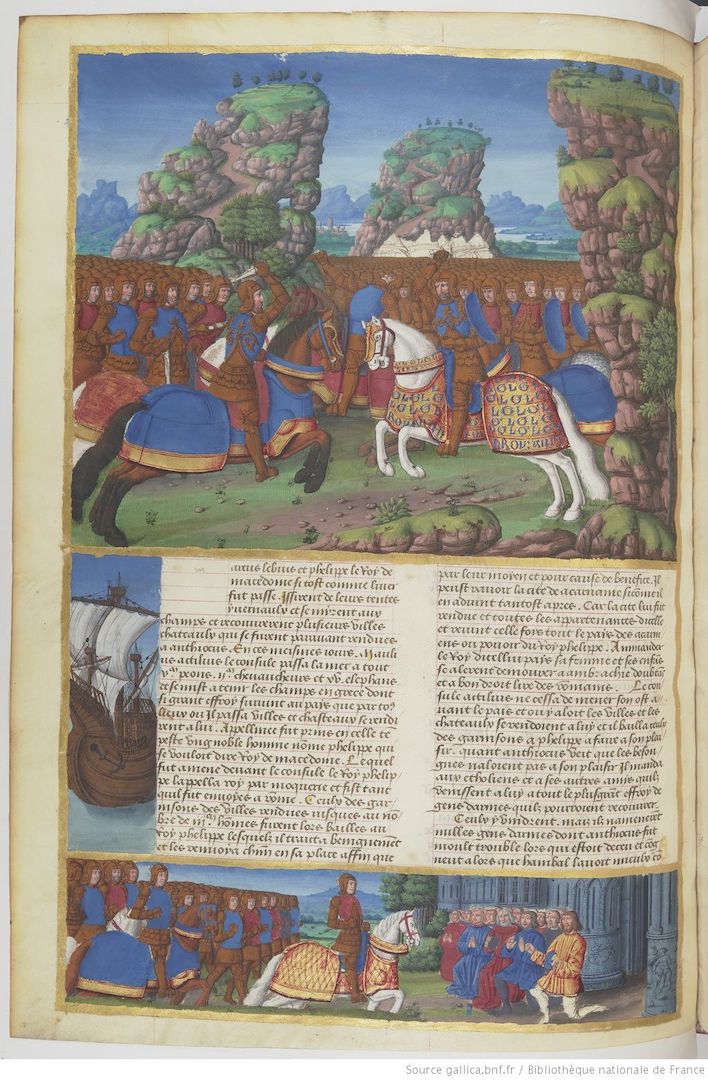 arcius bebius et phelippe le Roy de
macedome si tost comme liuer
fut passe. Issirent de leurs tentes
et se myrent aux
champs et recouurerent plusieurs villes
chateaulx qui se furent parauant rendues
a anthiocus. En ces mesmes iours. Mauli
us actilius le consule passa la mer a tout
et se mist a tenir les champs en grece dont
si grant effroy furuint au pays que par tous
lieux ou Il passa villes et chasteaux se rendi
rent a luy. Apellinee fut prins en celle te
peste vng noble homme nomme phelippe qui
se vouloit dire Roy de macedome. Lequel
fut amene deuant le consule le Roy phelip
pe lappella roy par moquerie et fist tant
quil fut enuoyes a rome. Touls des gar
nisons des villes rendues iusques au no
bre de hommes furent lors bailles au
Roy phelippe lesquelx il traita benignemet
et les renuoya en sa place affin que
par leur moyen et pour cause de benefice. Il
peust rauoir la cite de acarname si come il
en aduint tantost apres. Car la cite luy fut
rendue et toutes les appartenances dicelle
et reuint celle foys tout le pays des acarn
ens ou pouoir du Roy phelippe. Amander
le Roy dicelluy pays sa femme et ses enfans
et a bon droit lire des rommains. Le con
sule actilius ne cessa de mener son ost a
uant le pays et ou y aloit les villes et les
chateaulx se rendoient a luy et Il bailla
des garnisons a phelippe a faire a son plai
sir. quant anthiocus veit que les beson
gnes naloient pas a son plaisir Il manda
aux etholiens et a ses autres amis quilz
venissent a luy a tout le plusgrant effroy de
gens darmes quilz pourroient recouurer.
Ceulx y vindrent. mais ilz namenerent
milles gens darmes dont anthiocus fut
moult trouble lors qui estoit deceu et cog
neut a lors que hanibal lauoit mieulx co
Source gallica.bnf.fr / Bibliothèque nationale de France